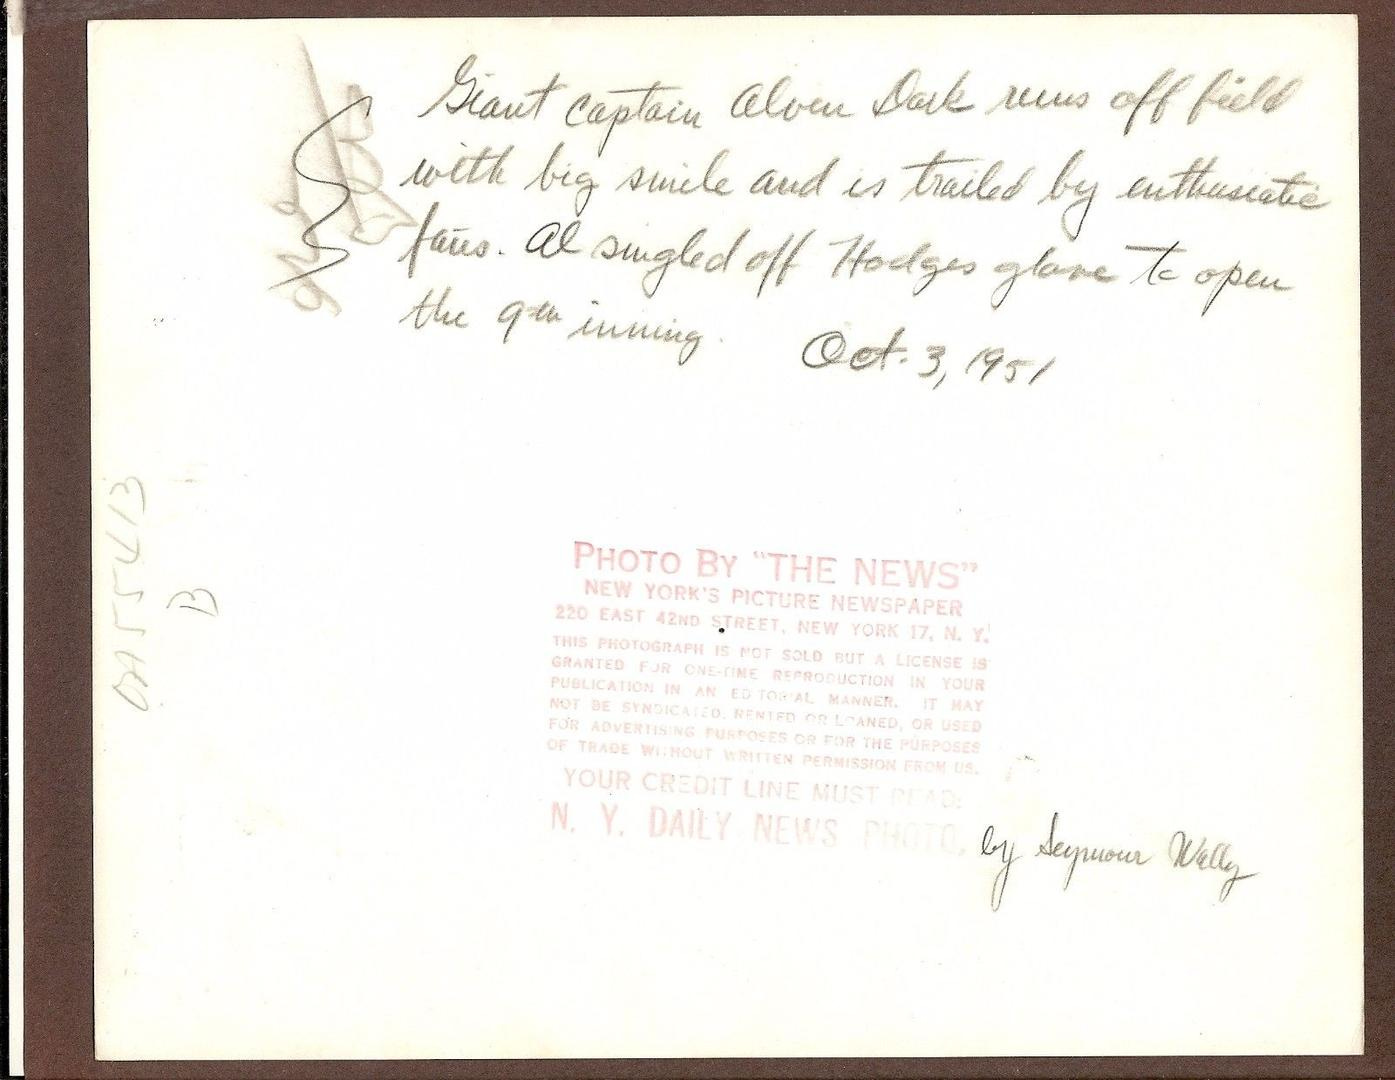 Giant captain Alven Dark runs off field
with big smile and is trailed by enthusiatic
fans. Al singled off Hodges glove to open
the 9th inning. Oct. 3, 1951
0A55413
B
PHOTO BY "THE NEWS"
NEW YORK'S PICTURE NEWSPAPER
220 EAST 42ND STREET, NEW YORK 17, N. Y.
THIS PHOTOGRAPH IS NOT SOLD BUT A LICENSE IS
GRANTED FOR ONE-TIME REPRODUCTION IN YOUR
PUBLICATION IN AN EDITORIAL MANNER. IT MAY
NOT BE SYNDICATED, RENTED OR LOANED, OR USED
FOR ADVERTISING PURPOSES OR FOR THE PURPOSES
OF TRADE WITHOUT WRITTEN PERMISSION FROM US.
YOUR CREDIT LINE MUST READ:
N. Y. DAILY NEWS PHOTO, by Seymour Wally